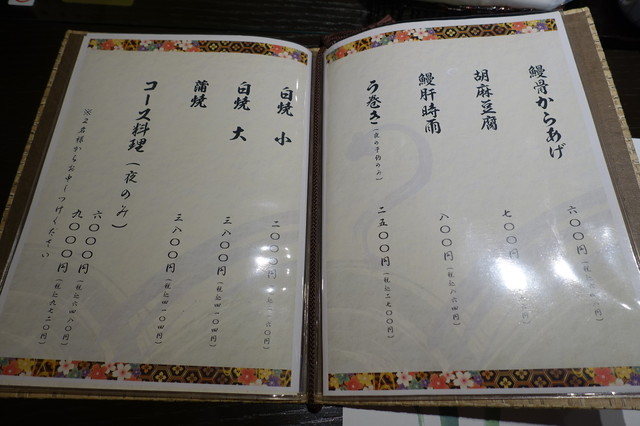 鰻骨からあげ 六〇〇円
胡麻豆腐 七〇〇円
鰻肝時雨 八〇〇円(税込八六四円)
う巻き(夜の予約のみ) 二五〇〇円(税込二七〇〇円)
白焼 小 二〇〇〇円
白焼 大 三八〇〇円(税込四一〇四円)
蒲焼 三八〇〇円(税込四一〇四円)
コース料理(夜のみ)
六〇〇〇円(税込六四八〇円)
九〇〇〇円(税込九七二〇円)
※2名様からお申しつけください